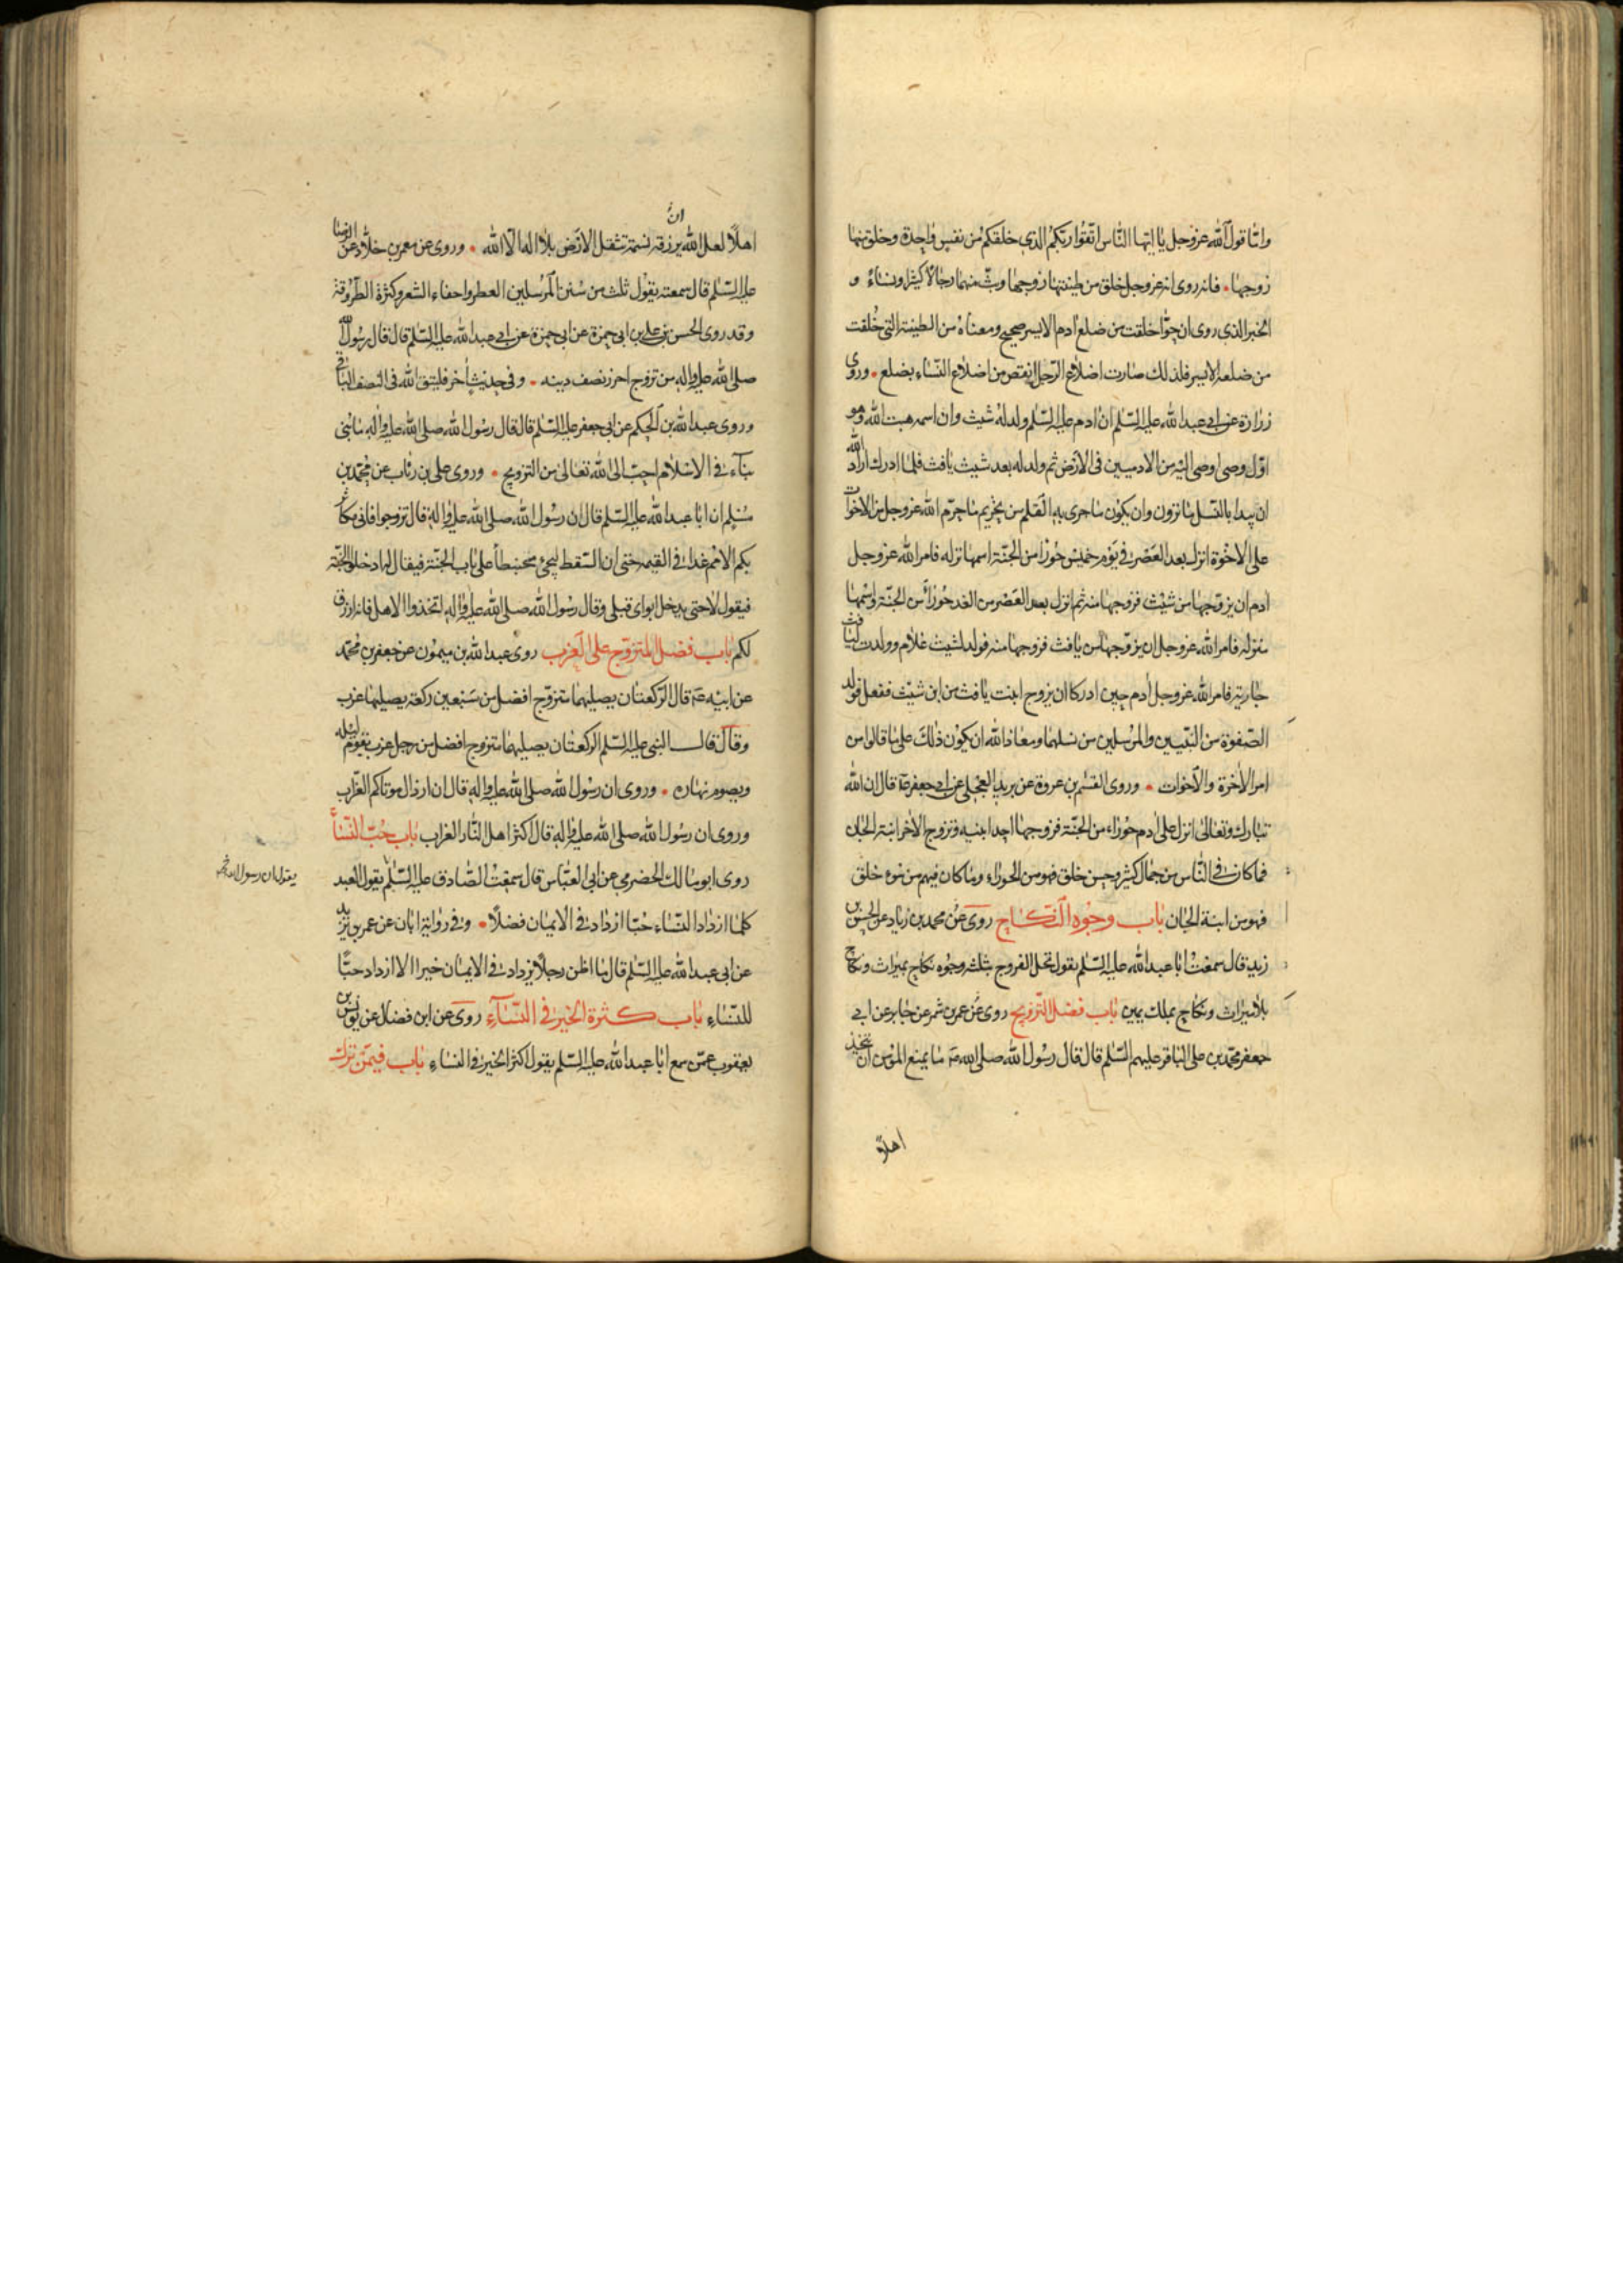 وامّا قول الله عز وجل يا ايها الناس اتقوا ربكم الذي خلقكم من نفس واحدة وخلق منها
زوجها • فانه روى انه عز وجل خلق من طينتها زوجها وبث منهما رجالا كثيرا ونساء و
الخبر الذي روى ان حوا خلقت من ضلع ادم الايسر صحيح ومعناه من الطينة التي خلقت
من ضلعه الايسر فلذلك صارت اضلاع الرجل انقص من اضلاع النساء بضلع • وروى
زرارة عن ابي عبد الله عليه السلم ان ادم عليه السلم ولد له شيث وان اسمه هبت الله وهو
اول وصى اوصى اليه من الادميين فى الارض ثم ولد له بعد شيث يافث فلما ادرك اراد الله
ان يبدا بالنسل ما ترون وان يكون ما جرى به القلم من تحريم ما حرم الله عز وجل من الاخوات
على الاخوة انزل بعد العصر في يوم خميس حورا من الجنة اسمها نزله فامر الله عز وجل
ادم ان يزوجها من شيث فزوجها منه ثم انزل بعد العصر من الغد حورا من الجنة واسمها
منزله فامر الله عز وجل ان يزوجها من يافث فزوجها منه فولد لشيث غلام وولدت ليافث
جارية فامر الله عز وجل ادم حين ادركا ان يزوج ابنت يافث من ابن شيث ففعل فولد
الصفوة من النبيين والمرسلين من نسلهما ومعاذ الله ان يكون ذلك على ما قالوا من
امر الاخوة والاخوات • وروى القسم بن عروة عن بريد العجلي عن ابي جعفر ع قال ان الله
تبارك وتعالى انزل على ادم حوراء من الجنة فزوجها احد ابنيه وتزوج الاخر ابنة الجان
فما كان في الناس من جمال كثير وحسن خلق فهو من الحوراء وما كان فيهم من سوء خلق
فهو من ابنة الجان باب وجوه النكاح روى عن محمد بن زياد عن الحسن بن
زيد قال سمعت ابا عبد الله عليه السلم يقول تحل الفروج بثلثه وجوه نكاح بميراث ونكاح
بلا ميراث ونكاح بملك يمين باب فضل التزويج روى عن عمر بن شمر عن جابر عن ابي
جعفر محمد بن علي الباقر عليهم السلم قال قال رسول الله صلى الله ع ما يمنع المؤمن ان يتخذ
اهلا
اهلا لعل الله ان يرزقه نسمة تثقل الارض بلا اله الا الله • وروى عن معمر بن خلاد عن الرضا
عليه السلم قال سمعته يقول ثلث من سنن المرسلين العطر واحفاء الشعر وكثرة الطروقة
وقد روى الحسن بن علي بن ابي حمزة عن ابي حمزة عن ابي عبد الله عليه السلم قال قال رسول الله
صلى الله عليه واله من تزوج احرز نصف دينه • وفى حديث اخر فليتق الله فى النصف الباقى
وروى عبد الله بن الحكم عن ابي جعفر عليه السلم قال قال رسول الله صلى الله عليه واله ما بني
بناء في الاسلام احب الى الله تعالى من التزويج • وروى علي بن رئاب عن محمد بن
مسلم ان ابا عبد الله عليه السلم قال ان رسول الله صلى الله عليه واله قال تزوجوا فانى مكاثر
بكم الامم غدا في القيمة حتى ان السقط ليجئ محبنطأ على باب الجنة فيقال له ادخل الجنة
فيقول لا حتى يدخل ابواى قبلى وقال رسول الله صلى الله عليه واله اتخذوا الاهل فانه ارزق
لكم باب فضل المتزوج على العزب روى عبد الله بن ميمون عن جعفر بن محمد
عن ابيه ع قال الركعتان يصليهما متزوج افضل من سبعين ركعة يصليها عزب
وقال قال النبى عليه السلم الركعتان يصليهما متزوج افضل من رجل عزب يقوم ليله
ويصوم نهاره • وروى ان رسول الله صلى الله عليه واله قال ان ارذال موتاكم العزاب
وروى ان رسول الله صلى الله عليه واله قال اكثر اهل النار العزاب باب حب النساء
روى ابو مالك الحضرمي عن ابي العباس قال سمعت الصادق عليه السلم يقول العبد
يقول ان رسول الله
كلما ازداد النساء حبا ازداد في الايمان فضلا • وفي رواية ابان عن عمر بن يزيد
عن ابي عبد الله عليه السلم قال ما اظن رجلا يزداد في الايمان خيرا الا ازداد حبا
للنساء باب كثرة الخير في النساء روى عن ابن فضال عن يونس بن
يعقوب عمن سمع ابا عبد الله عليه السلم يقول اكثر الخير في النساء باب فيمن ترك